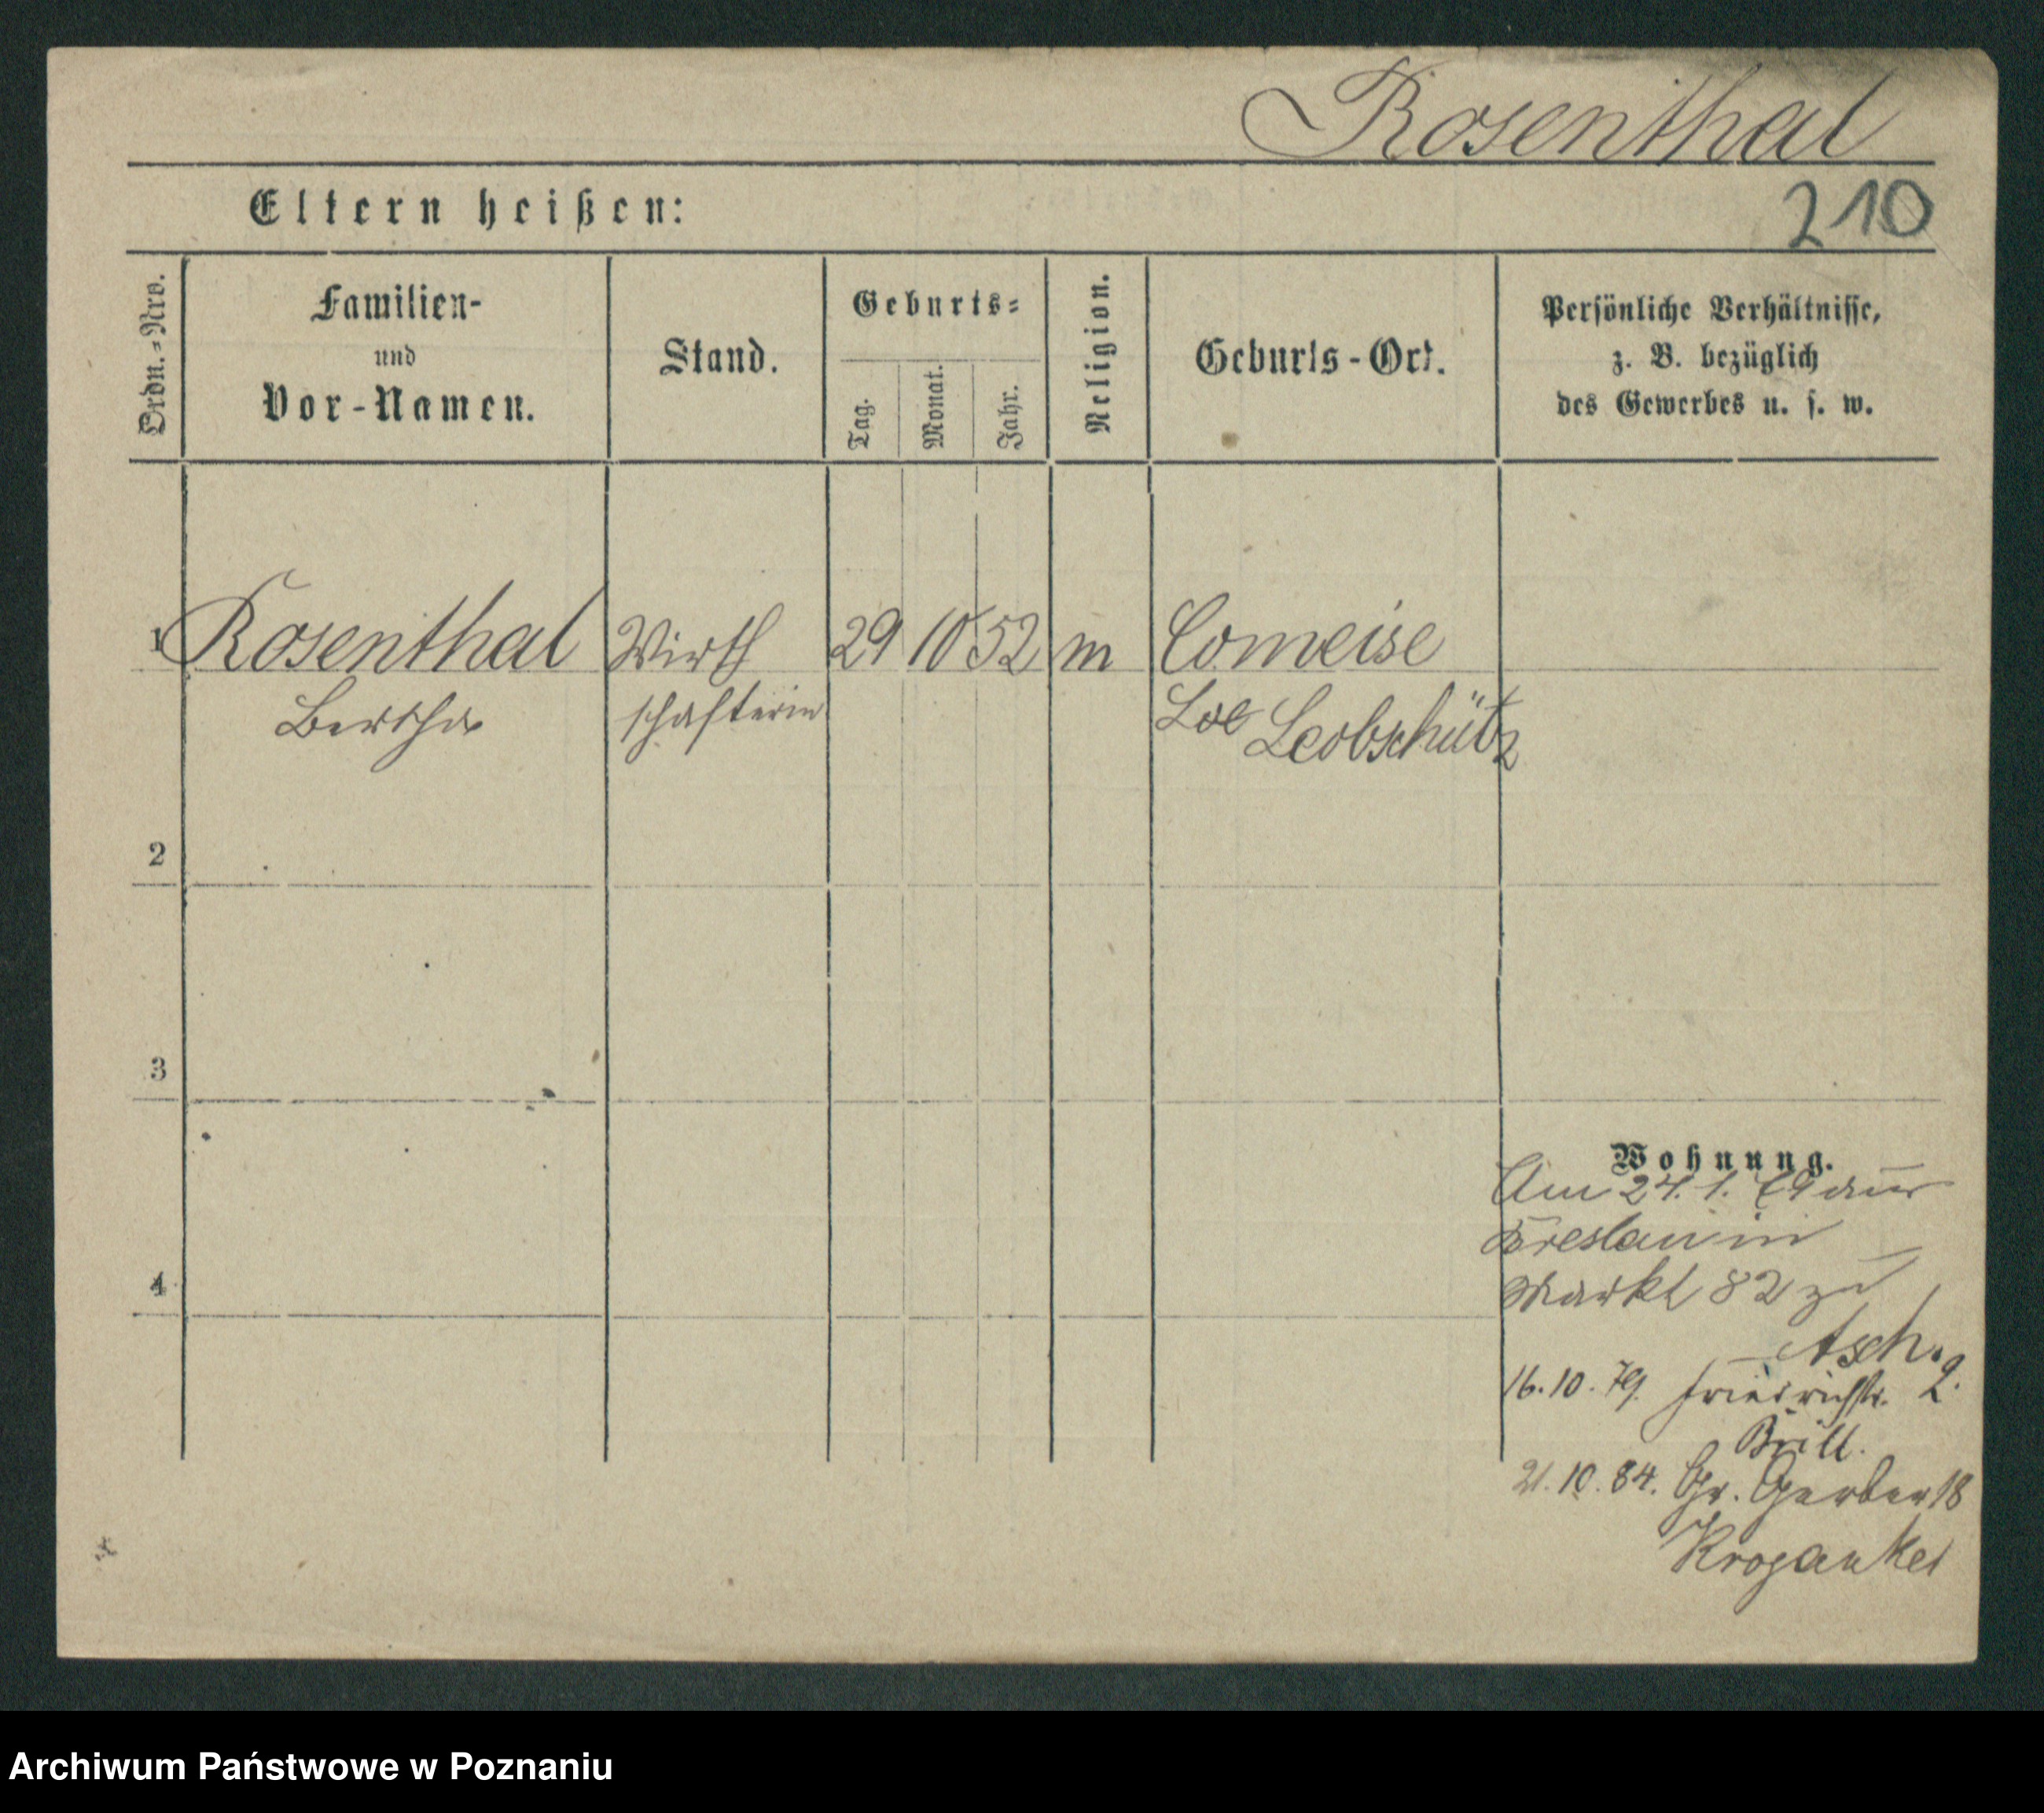 Rosenthal
Eltern heißen:
210
Ordn.-Nro.
Familien-
und
Vor-Namen.
Stand.
Geburts=
Tag.
Monat.
Jahr.
Religion.
Geburts-Ort.
Persönliche Verhältnisse,
z. B. bezüglich
des Gewerbes u. s. w.
1 Rosenthal Wirth 29 10 52 m Comeise
Bertha schafterin Loe Leobschütz
2
3
4
Wohnung.
Am 24. 1. 79 aus
Breslau in
Markt 82 zu
Asch.
16. 10. 79. Friedrichstr. 2.
Brill.
21. 10. 84. Gr. Gerber 18
Krojanker
Archiwum Państwowe w Poznaniu